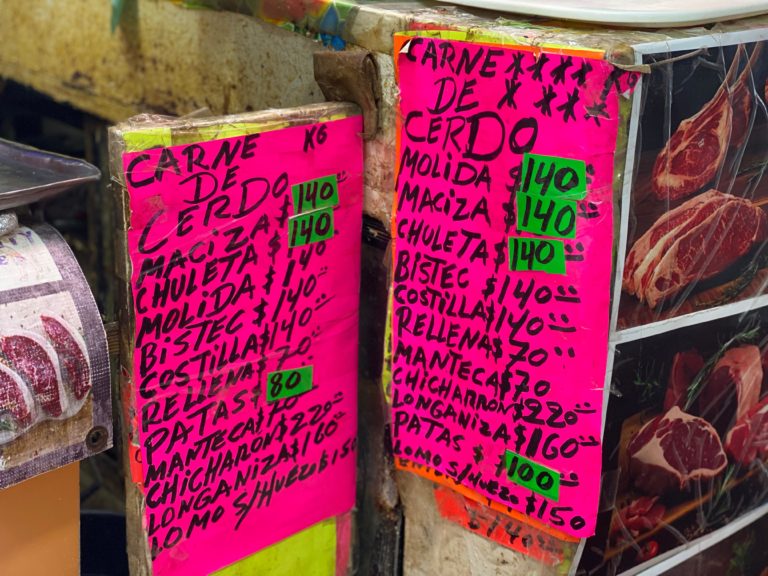 CARNE KG
DE
CERDO
MACIZA $140
CHULETA $140
MOLIDA $140
BISTEC $140
COSTILLA $140
RELLENA $70
PATAS $80
MANTECA $70
CHICHARON $220
LONGANIZA $160
LOMO S/HUEZO $150
CARNE **** KG
DE * ***
CERDO
MOLIDA $140
MACIZA $140
CHULETA $140
BISTEC $140
COSTILLA $140
RELLENA $70
MANTECA $70
CHICHARRON $220
LONGANIZA $160
PATAS $100
LOMO S/HUEZO $150
$140